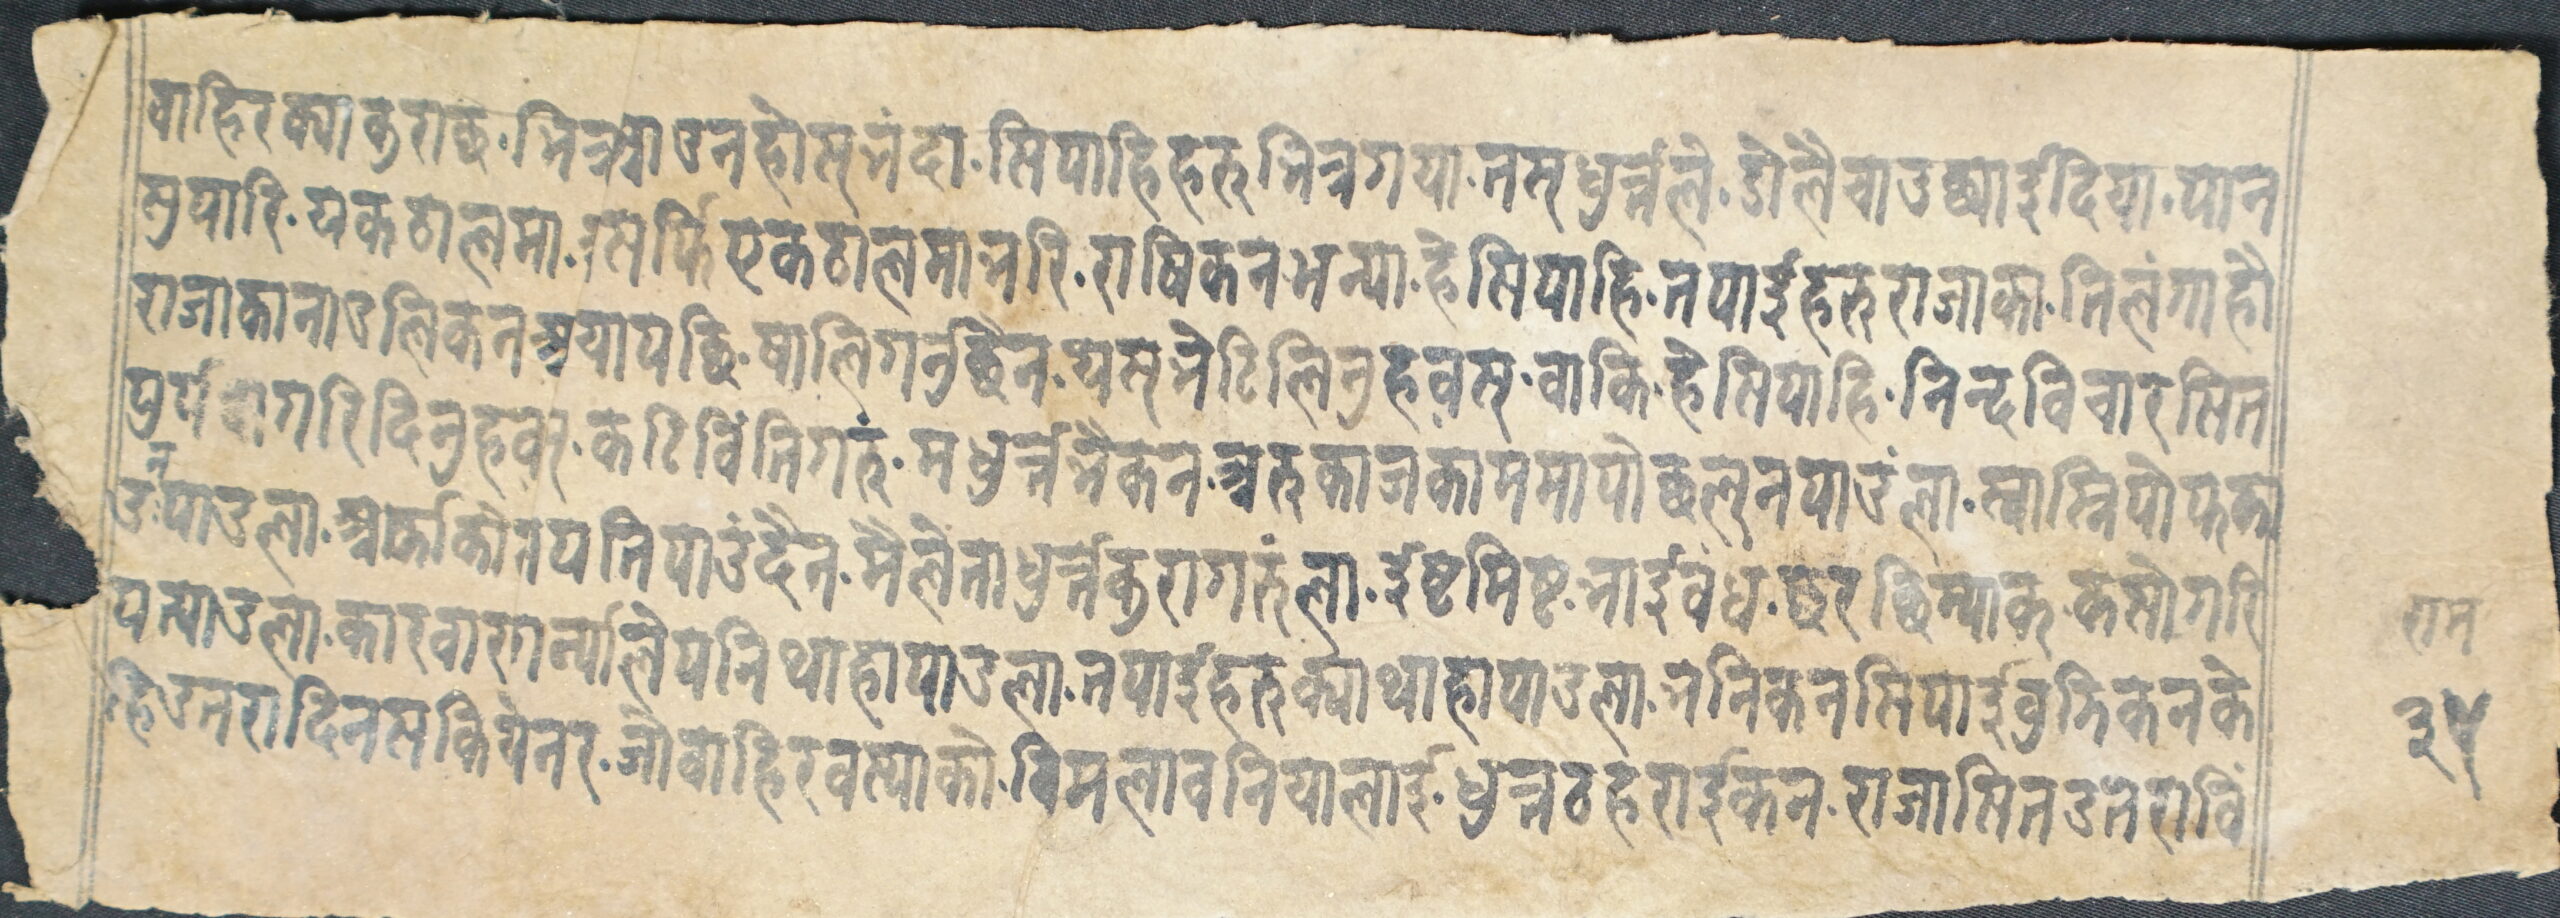 वाहिर क्या कुराछ. भित्र आउनहोस् भंदा. सिपाहिहरु भित्र गया. तस् धुर्त्तले. डोलैचा उछ्याई दिया. पान
सुपारि. यक ठालमा. सर्फि एक ठालमा भरि. राषिकन भन्या. हे सिपाहि. तपाईंहरु राजाका. तिलंगा हौ
राजाका नाउलिकन आयापछि. षालि गनु छैन. यस् भेटि लिनुहवस्. वाकि. हे सिपाहि. निन्द विचारसित
पुर्पगरि दिनुहवस्. कटि विंति गरुं. म धुर्त्त भैकन. अरु काजकाममा पो छलुन पाउंला. स्वास्नि पोइका
उन पाउला. अर्काको त पनि पाउंदैन. मैले ता धुर्त्त कुरा गरुंला. ईष्टमिष्ट. भाईवंध. छरछिम्याक्. कसो गरि
पत्याउला. कारवार गर्न्याले पनि थाहा पाउला. तपाईंहरु क्या थाहा पाउला. भनिकन सिपाई वुझिकन के
हि उत्तरा दिन सकियेन र. जौ वाहिर वस्याको. विमला वनियालाई. धुर्त्त ठहराईकन. राजासित उत्तरा विं
राम
३५